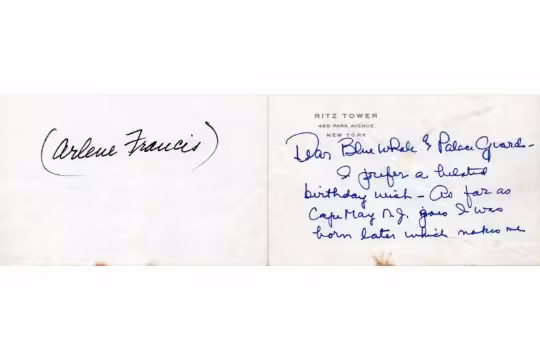 (Arlene Francis)
RITZ TOWER
465 PARK AVENUE
NEW YORK
Dear Blue Whale & Palace Guards-
I prefer a belated
birthday wish - As far as
Cape May N.J. goes I was
born later which makes me